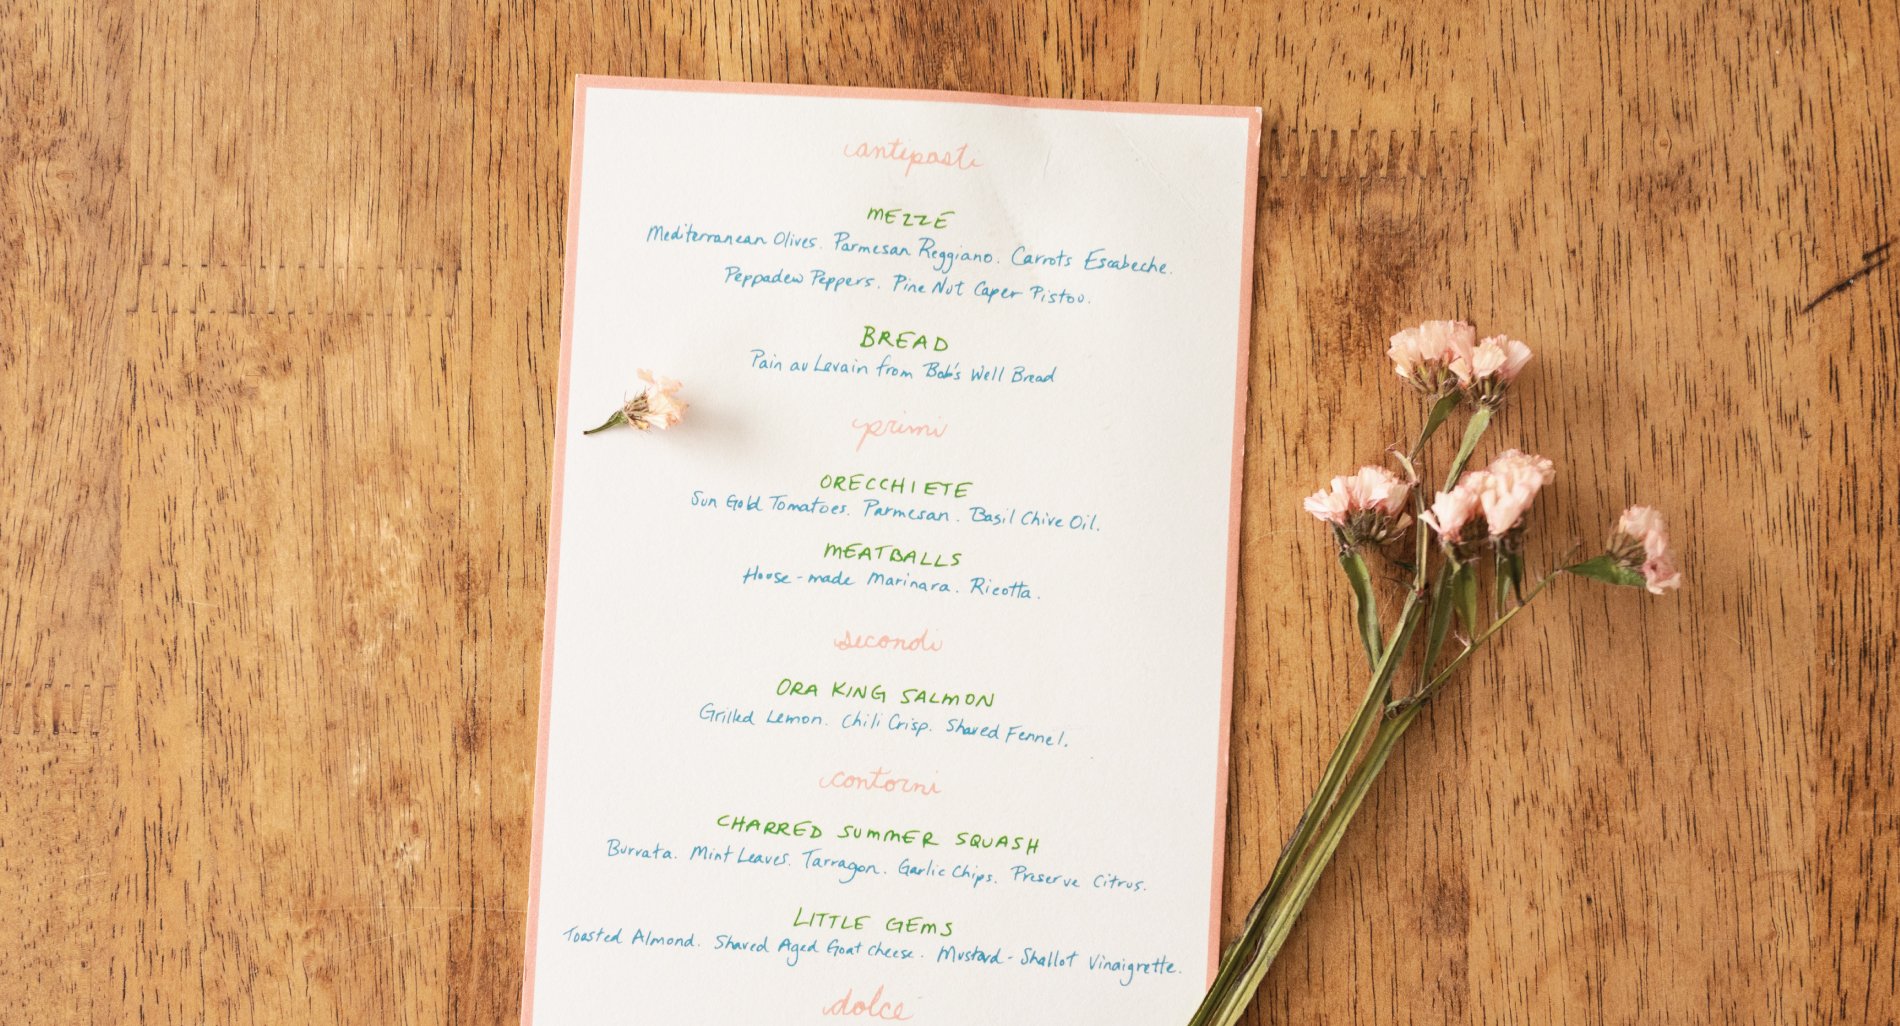 antipasti
MEZZE
Mediterranean Olives. Parmesan Reggiano. Carrots Escabeche.
Peppadew Peppers. Pine Nut Caper Pistou.
BREAD
Pain au Levain from Bob's Well Bread
primi
ORECCHIETE
Sun Gold Tomatoes. Parmesan. Basil Chive Oil.
MEATBALLS
House-made Marinara. Ricotta.
secondi
ORA KING SALMON
Grilled Lemon. Chili Crisp. Shaved Fennel.
contorni
CHARRED SUMMER SQUASH
Burrata. Mint Leaves. Tarragon. Garlic Chips. Preserve Citrus.
LITTLE GEMS
Toasted Almond. Shaved Aged Goat Cheese. Mustard-Shallot Vinaigrette.
dolce